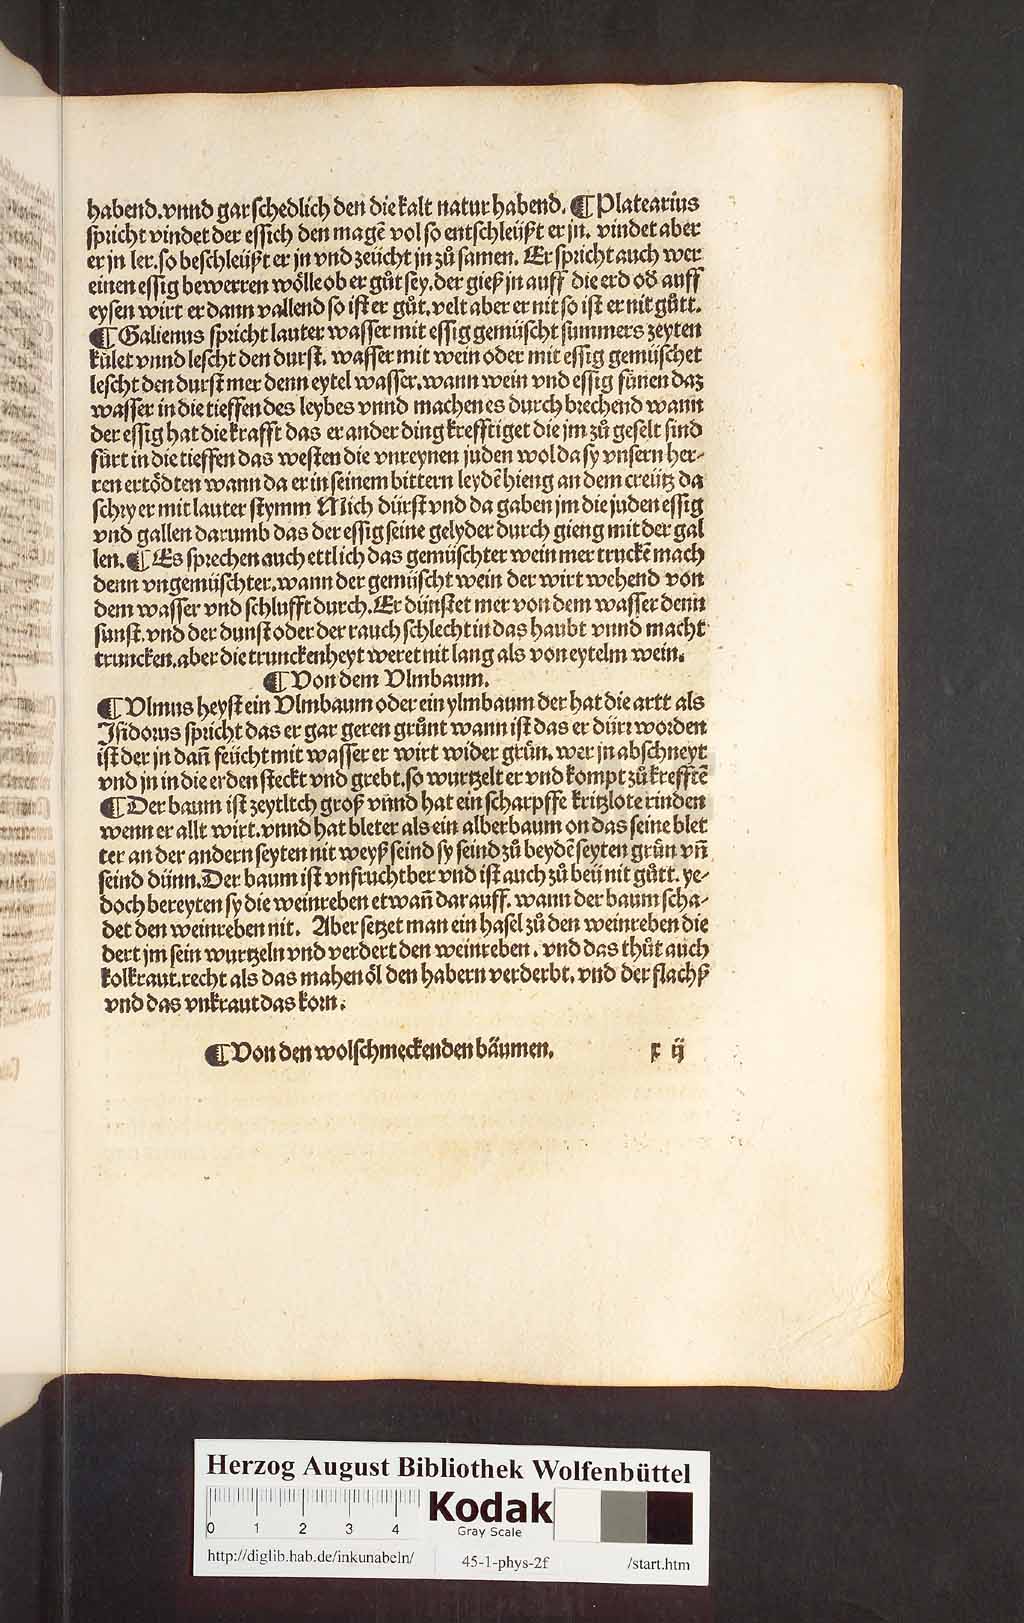 habend. vnnd gar schedlich den die kalt natur habend. ¶ Platearius
spricht vindet der essich den magē vol so entschleüßt er jn. vindet aber
er jn ler. so beschleüßt er jn vnd zeücht jn zů samen. Er spricht auch wer
einen essig bewerren wölle ob er gůt sey. der gieß jn auff die erd od̄ auff
eysen wirt er dann vallend so ist er gůt. velt aber er nit so ist er nit gůtt.
¶ Galienus spricht lauter wasser mit essig gemüscht summers zeyten
kůlet vnnd lescht den durst. wasser mit wein oder mit essig gemüschet
lescht den durst mer denn eytel wasser. wann wein vnd essig fůnen daz
wasser in die tieffen des leybes vnnd machen es durch brechend wann
der essig hat die krafft das er ander ding krefftiget die jm zů geselt sind
fůrt in die tieffen das westen die vnreynen juden wol da sy vnsern her-
ren ertödten wann da er in seinem bittern leydē hieng an dem creütz da
schry er mit lauter stymm Mich dürst vnd da gaben jm die juden essig
vnd gallen darumb das der essig seine gelyder durch gieng mit der gal
len. ¶ Es sprechen auch ettlich das gemüschter wein mer truckē mach
denn vngemüschter. wann der gemüscht wein der wirt wehend von
dem wasser vnd schlufft durch. Er dünstet mer von dem wasser denn
sunst. vnd der dunst oder der rauch schlecht in das haubt vnnd macht
truncken. aber die trunckenheyt weret nit lang als von eytelm wein.
¶ Von dem Vlmbaum.
¶ Vlmus heyst ein Vlmbaum oder ein ylmbaum der hat die artt als
Jsidorus spricht das er gar geren grůnt wann ist das er dürr worden
ist der jn dañ feücht mit wasser er wirt wider grůn. wer jn abschneyt
vnd jn in die erden steckt vnd grebt. so wurtzelt er vnd kompt zů krefftē
¶ Der baum ist zeytltch groß vnnd hat ein scharpffe kritzlote rinden
wenn er allt wirt. vnnd hat bleter als ein alberbaum on das seine blet
ter an der andern seyten nit weyß seind sy seind zů beydē seyten grůn vñ
seind dünn. Der baum ist vnfruchtber vnd ist auch zů beü nit gůtt. ye-
doch bereyten sy die weinreben etwañ darauff. wann der baum scha-
det den weinreben nit. Aber setzet man ein hasel zů den weinreben die
dert jm sein wurtzeln vnd verdert den weinreben. vnd das thůt auch
kolkraut. recht als das mahenöl den habern verderbt. vnd der flachß
vnd das vnkraut das korn.
¶ Von den wolschmeckenden bäumen. r ij
Herzog August Bibliothek Wolfenbüttel
0 1 2 3 4
Kodak
Gray Scale
http://diglib.hab.de/inkunabeln/ 45-1-phys-2f /start.htm